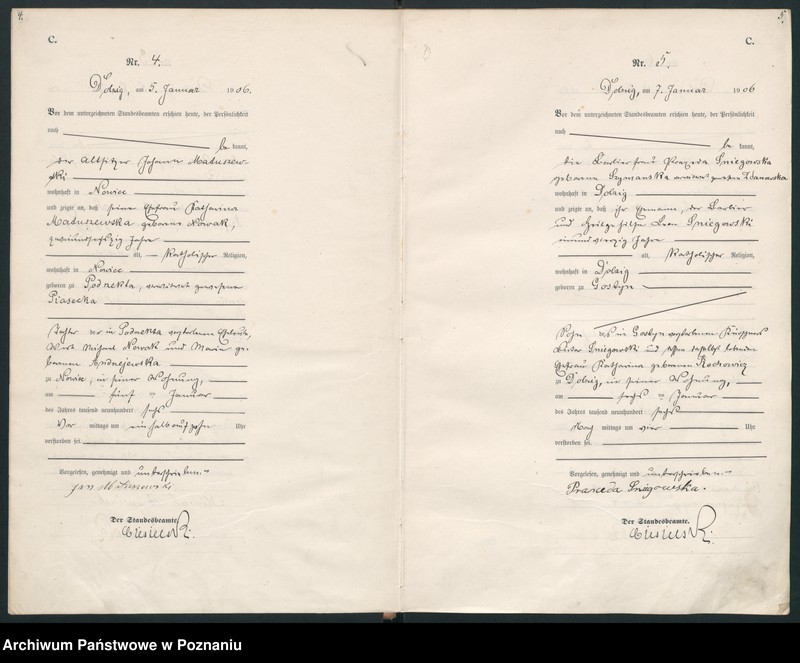 4.
C.
Nr. 4.
Dolzig, am 5. Januar 1906.
Vor dem unterzeichneten Standesbeamten erschien heute, der Persönlichkeit
nach
be kannt,
der Altsitzer Johann Matuszew-
ski
wohnhaft in Nowiec
und zeigte an, daß seine Ehefrau Katharina
Matuszewska geborene Nowak,
Jahre
alt, Katholischer Religion,
wohnhaft in Nowiec
geboren zu
Piasecka
Tochter der in verstorbenen Eheleute,
Wirt Michael Nowak und Maria ge-
borenen Andrzejewska
zu Nowiec, in seiner Wohnung,
am fünf ten Januar
des Jahres tausend neunhundert sechs
Vor mittags um ein halb auf zehn Uhr
verstorben sei.
Vorgelesen, genehmigt und unterschrieben.
Jan
Der Standesbeamte.
5.
C.
Nr. 5.
Dolzig, am 7. Januar 1906
Vor dem unterzeichneten Standesbeamten erschien heute, der Persönlichkeit
nach
be kannt,
die Barbierfrau Praxeda Sniegowska
geborene Szymanska
wohnhaft in Dolzig
und zeigte an, daß ihr Ehemann, der Barbier
und Heilgehilfe Leon Sniegowski
einundvierzig Jahre
alt, Katholischer Religion,
wohnhaft in Dolzig
geboren zu Gostyn
Sohn des in Gostyn verstorbenen Kürschners
Sniegowski und dessen daselbst lebenden
Ehefrau Katharina geborenen Rochowicz
zu Dolzig, in seiner Wohnung,
am sechs ten Januar
des Jahres tausend neunhundert sechs
Nach mittags um vier Uhr
verstorben sei.
Vorgelesen, genehmigt und unterschrieben.
Praxeda Sniegowska.
Der Standesbeamte.
Archiwum Państwowe w Poznaniu